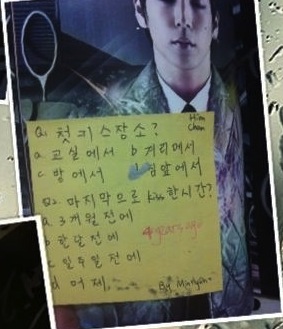 Him
Chan
Q1 첫키스장소?
a. 교실에서 b 거리에서
c 방에서 d 집앞에서
Q2. 마지막으로 kiss한시간?
a 3개월 전에
4 years ago
b 한달 전에
c 일주일 전에
d 어제.
By Minhyun